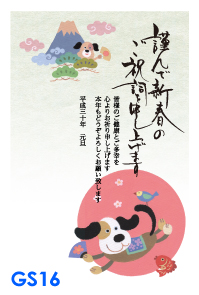 謹んで新春の
ご祝詞申し上げます
皆様のご健康とご多幸を
心よりお祈り申し上げます
本年もどうぞよろしくお願い致します
平成三十年 元旦
GS16